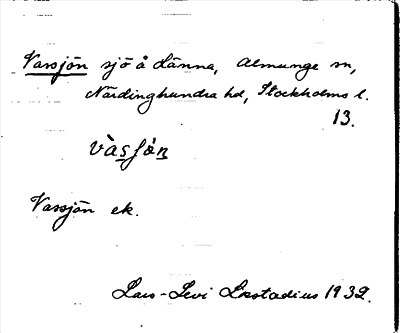 Vassjön sjö å Länna, Almunge sn,
Närdinghundra hd, Stockholms l.
13.
và̀sʃö́n
Vassjön ek.
Lars-Levi Læstadius 1932.